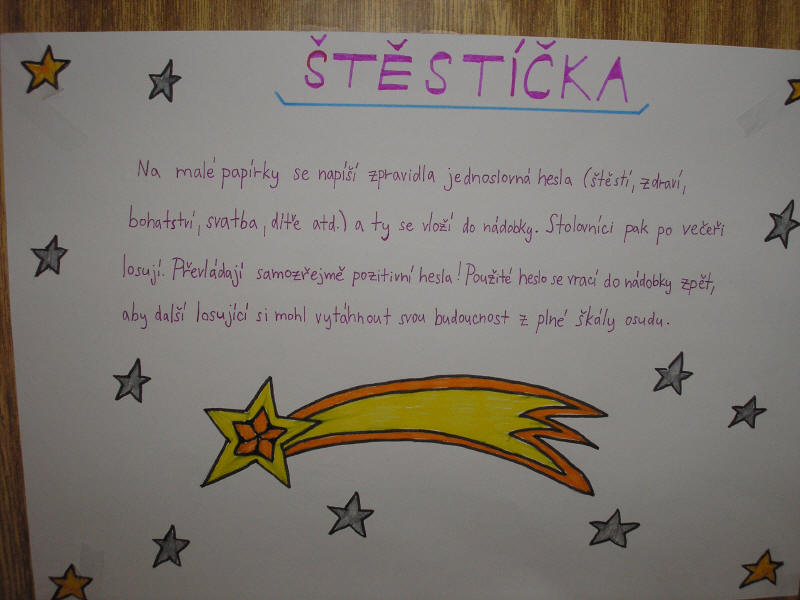 ŠTĚSTÍČKA
Na malé papírky se napíší zpravidla jednoslovná hesla (štěstí, zdraví,
bohatství, svatba, dítě atd.) a ty se vloží do nádobky. Stolovníci pak po večeři
losují. Převládají samozřejmě pozitivní hesla! Použité heslo se vrací do nádobky zpět,
aby další losující si mohl vytáhnout svou budoucnost z plné škály osudu.